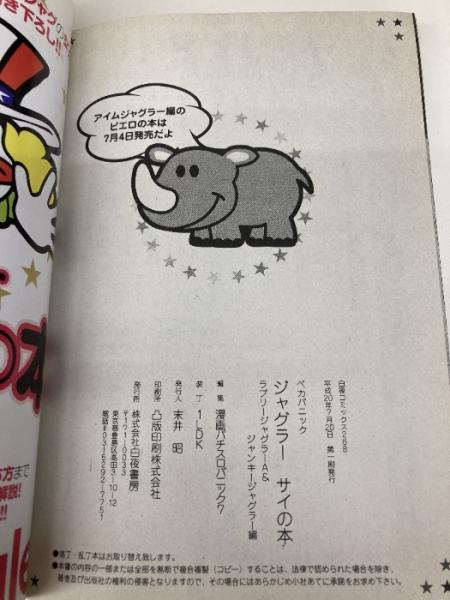 ジャグの
き下ろし!!
アイムジャグラー編の
ピエロの本は
7月4日発売だよ
白夜コミックス268
平成20年7月20日 第一刷発行
ペカパニック
ジャグラー サイの本
ラブリージャグラーA&
ジャンキージャグラー編
編集 漫画パチスロパニック7
装丁 1LDK
発行人 末井 昭
印刷所 凸版印刷株式会社
発行所 株式会社白夜書房
〒171-0033
東京都豊島区高田3-10-12
電話☎03-5292-7751
●落丁・乱丁本はお取り替え致します。
●本書の内容の一部または全部を無断で複写複製(コピー)することは、法律で認められた場合を除き、
著者及び出版社の権利の侵害となりますので、その場合にはあらかじめ小社あてに承諾をお求め下さい。
の本
方まで
解説!!
!!